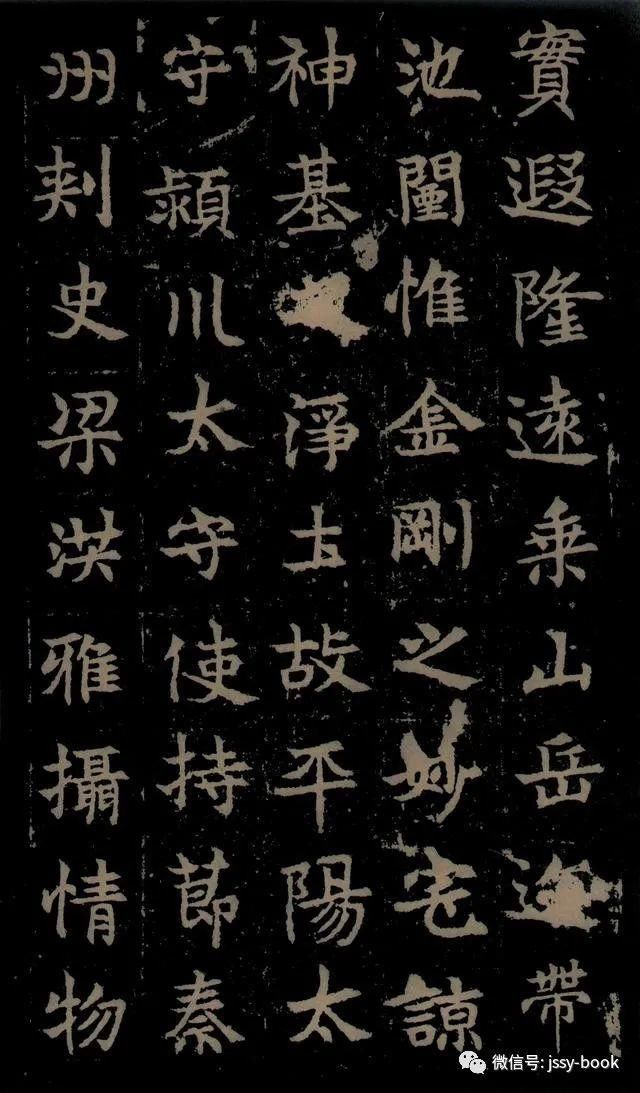 實遐隆遠乗山岳 帶
池閫惟金剛之妙宅諒
神基 淨土故平陽太
守潁川太守使持節秦
州刾史梁洪雅攝情物
微信号: jssy-book